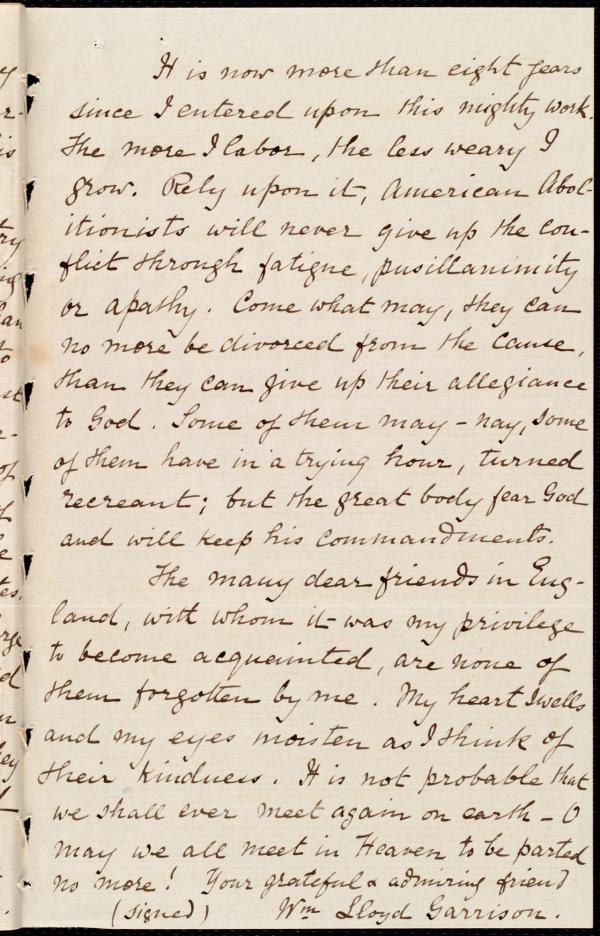 It is now more than eight years
since I entered upon this mighty work.
The more I labor, the less weary I
grow. Rely upon it, American Abol-
itionists will never give up the con-
flict through fatigue, pusillanimity
or apathy. Come what may, they can
no more be divorced from the cause,
than they can give up their allegiance
to God. Some of them may - nay, some
of them have in a trying hour, turned
recreant; but the great body fear God
and will keep his commandments.
The many dear friends in Eng-
land, with whom it was my privilege
to become acquainted, are none of
them forgotten by me. My heart swells
and my eyes moisten as I think of
their kindness. It is not probable that
we shall ever meet again on earth - O
may we all meet in Heaven to be parted
no more! Your grateful & admiring friend
(signed) Wm Lloyd Garrison.